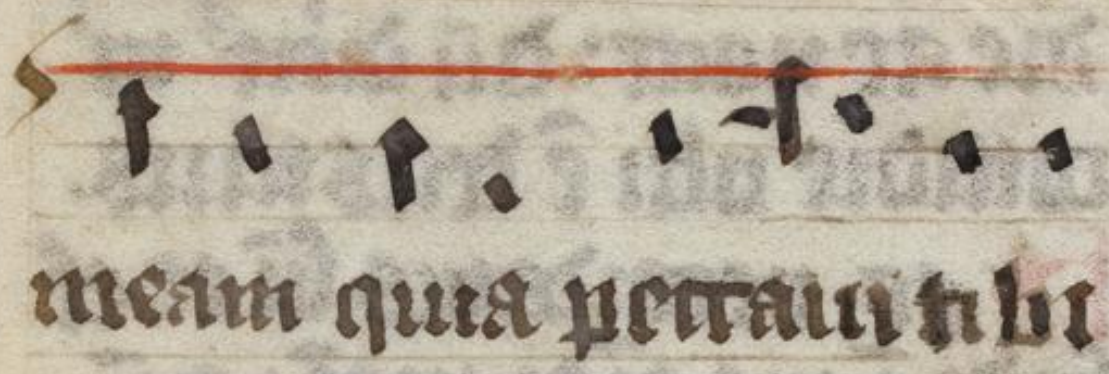 meam quia peccaui tibi